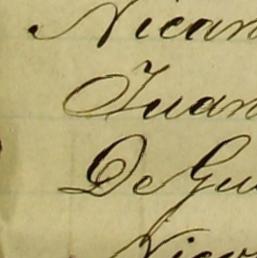 Nican
Juan
De Gu